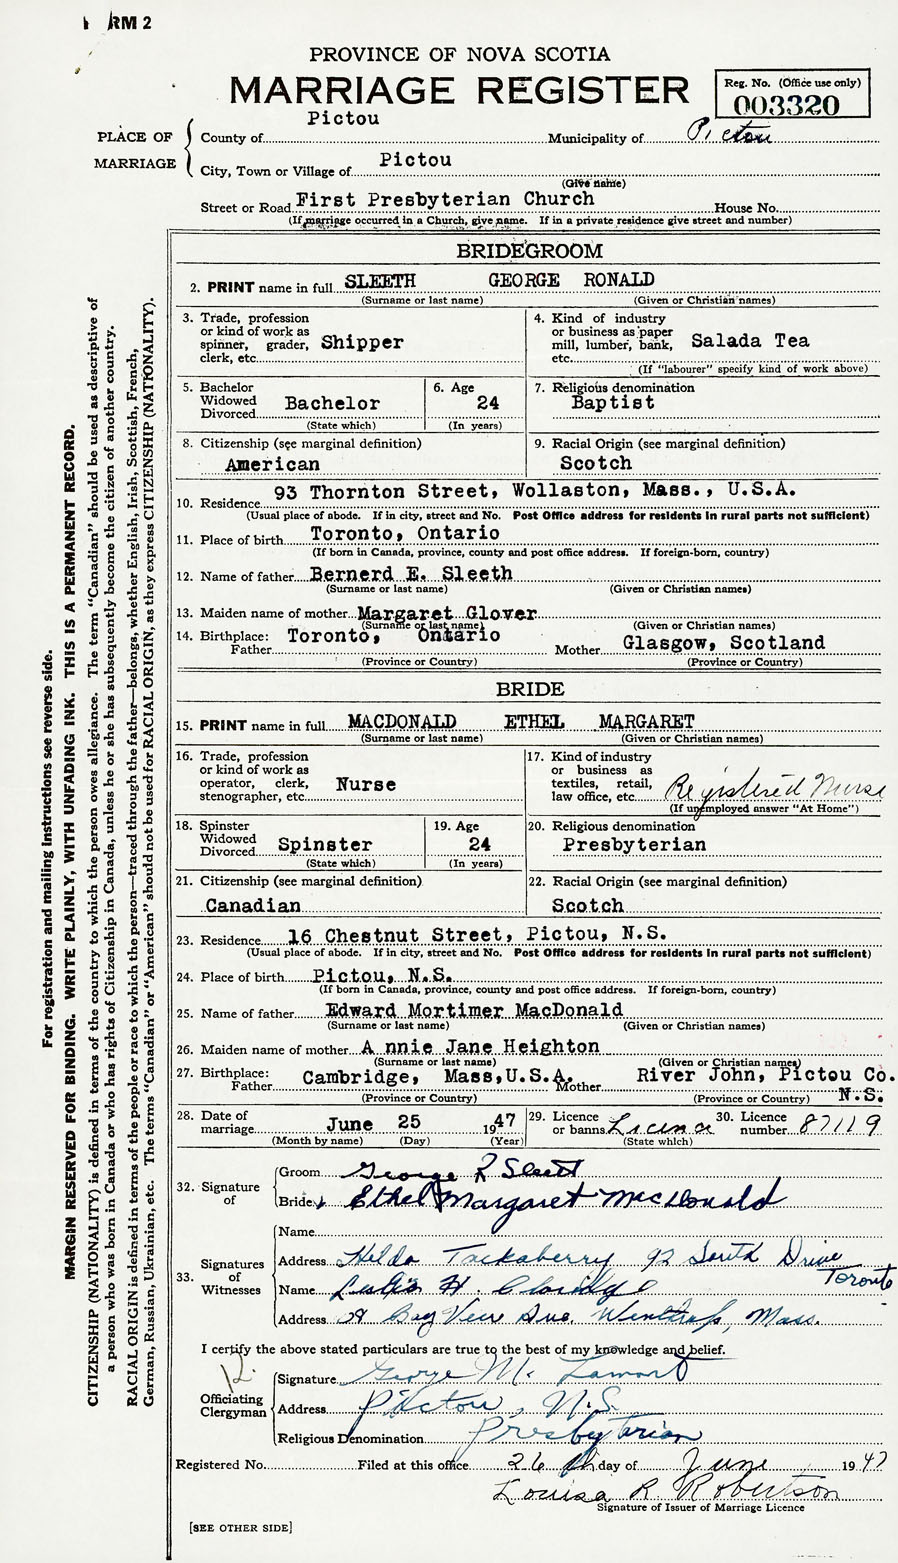 RM 2
PROVINCE OF NOVA SCOTIA
MARRIAGE REGISTER
Reg. No. (Office use only)
003320
PLACE OF MARRIAGE
County of Pictou Municipality of Pictou
City, Town or Village of Pictou
(Give name)
Street or Road First Presbyterian Church House No.
(If marriage occurred in a Church, give name. If in a private residence give street and number)
BRIDEGROOM
2. PRINT name in full SLEETH GEORGE RONALD
(Surname or last name) (Given or Christian names)
3. Trade, profession or kind of work as spinner, grader, clerk, etc. Shipper
4. Kind of industry or business as paper mill, lumber, bank, etc. Salada Tea
(If "labourer" specify kind of work above)
5. Bachelor Widowed Divorced Bachelor
(State which)
6. Age 24
(In years)
7. Religious denomination
Baptist
8. Citizenship (see marginal definition)
American
9. Racial Origin (see marginal definition)
Scotch
10. Residence 93 Thornton Street, Wollaston, Mass., U.S.A.
(Usual place of abode. If in city, street and No. Post Office address for residents in rural parts not sufficient)
11. Place of birth Toronto, Ontario
(If born in Canada, province, county and post office address. If foreign-born, country)
12. Name of father Bernerd E. Sleeth
(Surname or last name) (Given or Christian names)
13. Maiden name of mother Margaret Glover
(Surname or last name) (Given or Christian names)
14. Birthplace: Father Toronto, Ontario Mother Glasgow, Scotland
(Province or Country) (Province or Country)
BRIDE
15. PRINT name in full MACDONALD ETHEL MARGARET
(Surname or last name) (Given or Christian names)
16. Trade, profession or kind of work as operator, clerk, stenographer, etc. Nurse
17. Kind of industry or business as textiles, retail, law office, etc. Registered Nurse
(If unemployed answer "At Home")
18. Spinster Widowed Divorced Spinster
(State which)
19. Age 24
(In years)
20. Religious denomination
Presbyterian
21. Citizenship (see marginal definition)
Canadian
22. Racial Origin (see marginal definition)
Scotch
23. Residence 16 Chestnut Street, Pictou, N.S.
(Usual place of abode. If in city, street and No. Post Office address for residents in rural parts not sufficient)
24. Place of birth Pictou, N.S.
(If born in Canada, province, county and post office address. If foreign-born, country)
25. Name of father Edward Mortimer MacDonald
(Surname or last name) (Given or Christian names)
26. Maiden name of mother A nnie Jane Heighton
(Surname or last name) (Given or Christian names)
27. Birthplace: Father Cambridge, Mass,U.S.A. Mother River John, Pictou Co. N.S.
(Province or Country) (Province or Country)
28. Date of marriage June 25 1947
(Month by name) (Day) (Year)
29. Licence or banns Licence
(State which)
30. Licence number 87119
32. Signature of
Groom George R Sleeth
Bride Ethel Margaret MacDonald
33. Signatures of Witnesses
Name
Address Hilda Tackaberry 92 South Drive Toronto
Name H.
Address Bay View Ave. Winthrop, Mass.
I certify the above stated particulars are true to the best of my knowledge and belief.
Officiating Clergyman
Signature George M. Lamont
Address Pictou, N.S.
Religious Denomination Presbyterian
Registered No. Filed at this office 26 th day of June 1947
Louisa R. Robertson
Signature of Issuer of Marriage Licence
[SEE OTHER SIDE]
For registration and mailing instructions see reverse side.
MARGIN RESERVED FOR BINDING. WRITE PLAINLY, WITH UNFADING INK. THIS IS A PERMANENT RECORD.
CITIZENSHIP (NATIONALITY) is defined in terms of the country to which the person owes allegiance. The term "Canadian" should be used as descriptive of
a person who was born in Canada or who has rights of Citizenship in Canada, unless he or she has subsequently become the citizen of another country.
RACIAL ORIGIN is defined in terms of the people or race to which the person—traced through the father—belongs, whether English, Irish, Scottish, French,
German, Russian, Ukrainian, etc. The terms "Canadian" or "American" should not be used for RACIAL ORIGIN, as they express CITIZENSHIP (NATIONALITY).